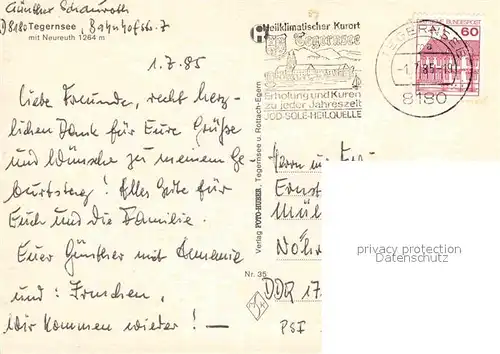 Günther Schauroth
D8180 Tegernsee, Bahnhofstr. 7
mit Neureuth 1264 m
1.7.85
Liebe Freunde, recht herz-
lichen Dank für Eure Grüße
und Wünsche zu meinem Ge-
burtstag! Alles Gute für
Euch und die Familie.
Euer Günther mit
und: Irmchen,
Wir kommen wieder! —
Heilklimatischer Kurort
Tegernsee
Erholung und Kuren
zu jeder Jahreszeit
JOD-SOLE-HEILQUELLE
TEGERNSEE
a
-1.7.85-19
8180
BUNDESPOST
60
Verlag FOTO-HUBER, Tegernsee u. Rottach-Egern
Nr. 35
Herrn u.
Ernst
Mül
DDR 17
PSF
privacy protection
Datenschutz